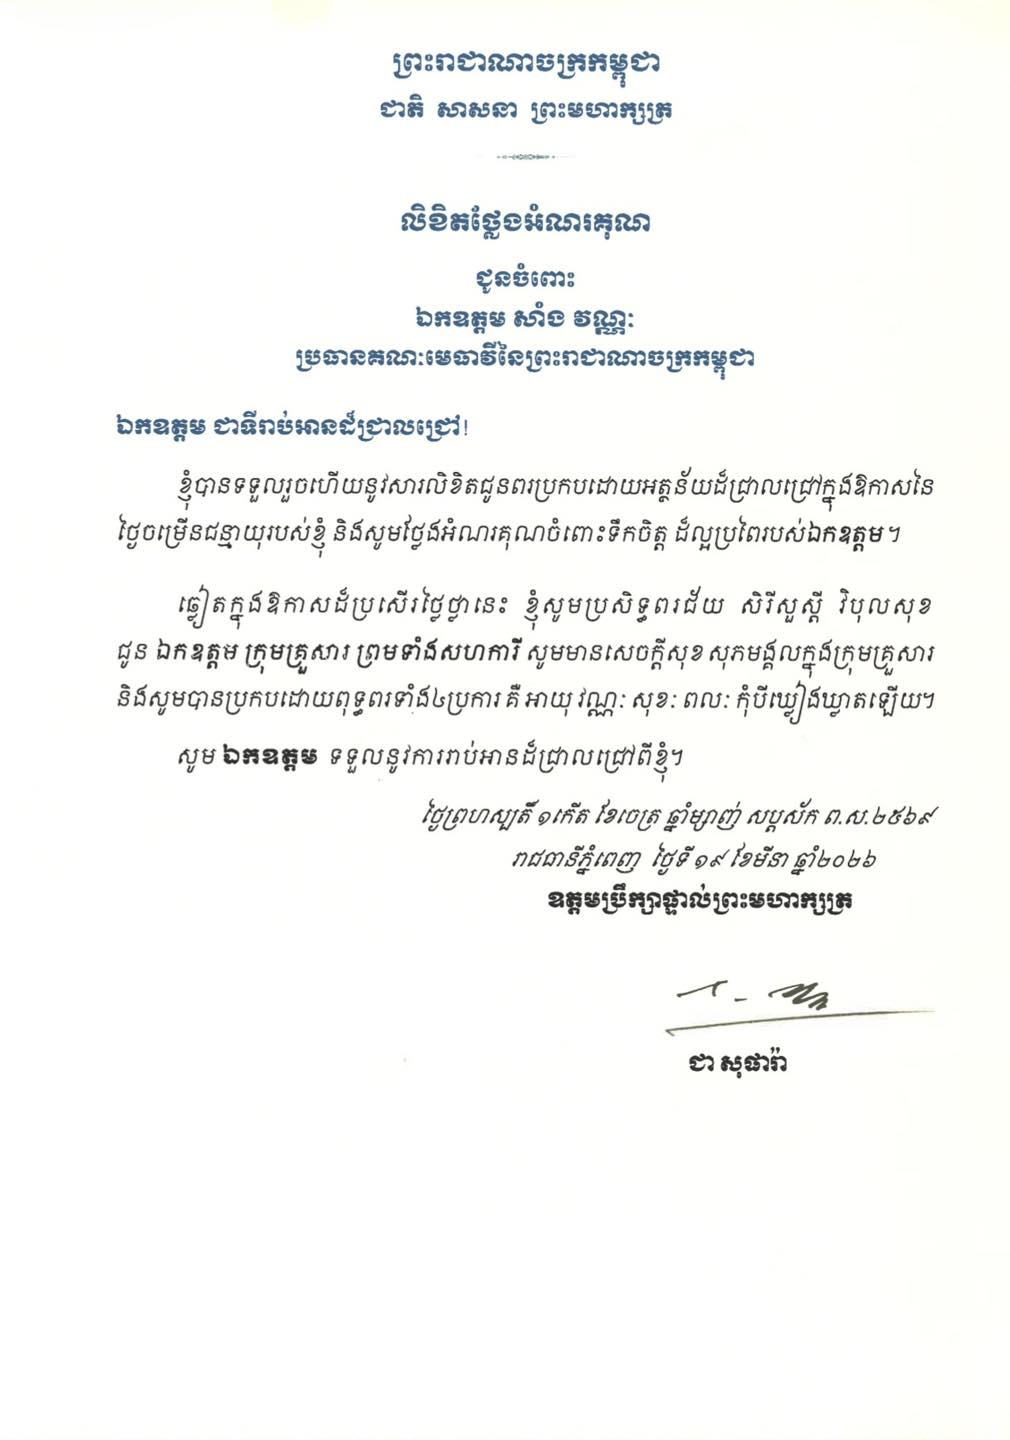 ព្រះរាជាណាចក្រកម្ពុជា
ជាតិ សាសនា ព្រះមហាក្សត្រ
លិខិតថ្លែងអំណរគុណ
ជូនចំពោះ
ឯកឧត្តម សាំង វណ្ណៈ
ប្រធានគណៈមេធាវីនៃព្រះរាជាណាចក្រកម្ពុជា
ឯកឧត្តម ជាទីរាប់អានដ៏ជ្រាលជ្រៅ!
ខ្ញុំបានទទួលរួចហើយនូវសារលិខិតជូនពរប្រកបដោយអត្ថន័យដ៏ជ្រាលជ្រៅក្នុងឱកាសនៃ
ថ្ងៃចម្រើនជន្មាយុរបស់ខ្ញុំ និងសូមថ្លែងអំណរគុណចំពោះទឹកចិត្ត ដ៏ល្អប្រពៃរបស់ឯកឧត្តម។
ឆ្លៀតក្នុងឱកាសដ៏ប្រសើរថ្លៃថ្លានេះ ខ្ញុំសូមប្រសិទ្ធពរជ័យ សិរីសួស្តី វិបុលសុខ
ជូន ឯកឧត្តម ក្រុមគ្រួសារ ព្រមទាំងសហការី សូមមានសេចក្តីសុខ សុភមង្គលក្នុងក្រុមគ្រួសារ
និងសូមបានប្រកបដោយពុទ្ធពរទាំង៤ប្រការ គឺ អាយុ វណ្ណៈ សុខៈ ពលៈ កុំបីឃ្លៀងឃ្លាតឡើយ។
សូម ឯកឧត្តម ទទួលនូវការរាប់អានដ៏ជ្រាលជ្រៅពីខ្ញុំ។
ថ្ងៃព្រហស្បតិ៍ ១កើត ខែចេត្រ ឆ្នាំម្សាញ់ សប្តស័ក ព.ស.២៥៦៩
រាជធានីភ្នំពេញ ថ្ងៃទី១៩ ខែមីនា ឆ្នាំ២០២៦
ឧត្តមប្រឹក្សាផ្ទាល់ព្រះមហាក្សត្រ
ជា សុផារ៉ា